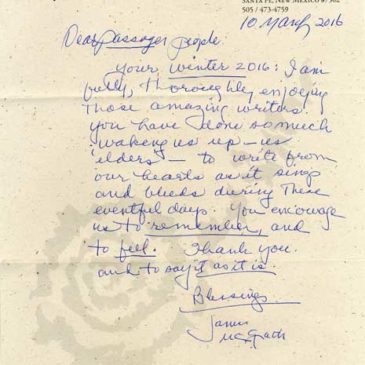 SANTA FE, NEW MEXICO 87502
505 / 473-4759
10 March 2016
Dear Passager People.
Your winter 2016: I am
fully, thoroughly enjoying
those amazing writers.
You have done so much
'waking us up — us
elders' — to write from
our hearts as it sings
and bleeds during these
eventful days. You encourage
us to remember, and
to feel. Thank you.
and to say it as it is.
Blessings,
McGrath